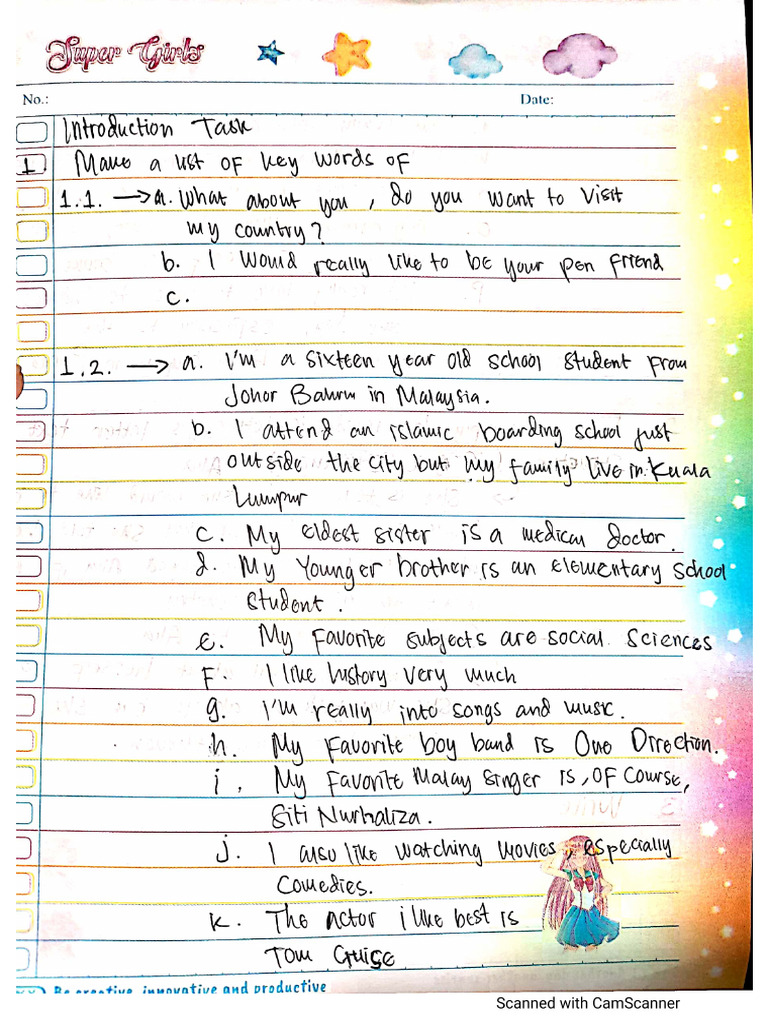 Super Girls
No.: Date:
Introduction Task
1 Make a list of key words of
1.1. → a. What about you, do you want to visit
my country?
b. I would really like to be your pen friend
c.
1.2. → a. I'm a sixteen year old school student from
Johor Bahru in Malaysia.
b. I attend an islamic boarding school just
outside the city but my family live in Kuala
Lumpur
c. My eldest sister is a medical doctor.
d. My Younger brother is an elementary school
student.
e. My favorite subjects are social sciences
F. I like history very much
g. I'm really into songs and music.
h. My favorite boy band is One Direction.
i. My Favorite Malay singer is, of course,
Siti Nurhaliza.
j. I also like watching movies, especially
Comedies.
k. The actor i like best is
Tom Cruise
Be creative, innovative and productive
Scanned with CamScanner